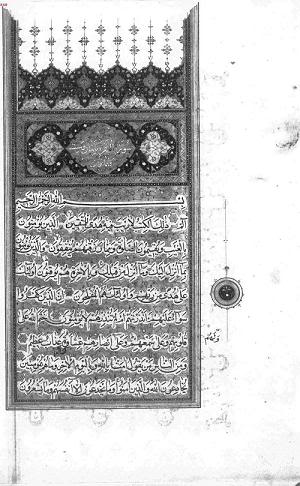 بسم الله الرحمن الرحيم
الم ذلك الكتاب لا ريب فيه هدى للمتقين الذين يؤمنون
بالغيب ويقيمون الصلوة ومما رزقناهم ينفقون والذين يؤمنون
بما انزل اليك وما انزل من قبلك وبالاخرة هم يوقنون اولئك
على هدى من ربهم واولئك هم المفلحون ان الذين كفروا
سواء عليهم ءانذرتهم ام لم تنذرهم لا يؤمنون ختم الله على
قلوبهم وعلى سمعهم وعلى ابصارهم غشاوة ولهم عذاب عظيم
ومن الناس من يقول امنا بالله وباليوم الاخر وما هم بمؤمنين
يخادعون الله والذين امنوا وما يخدعون الا انفسهم وما يشعرون